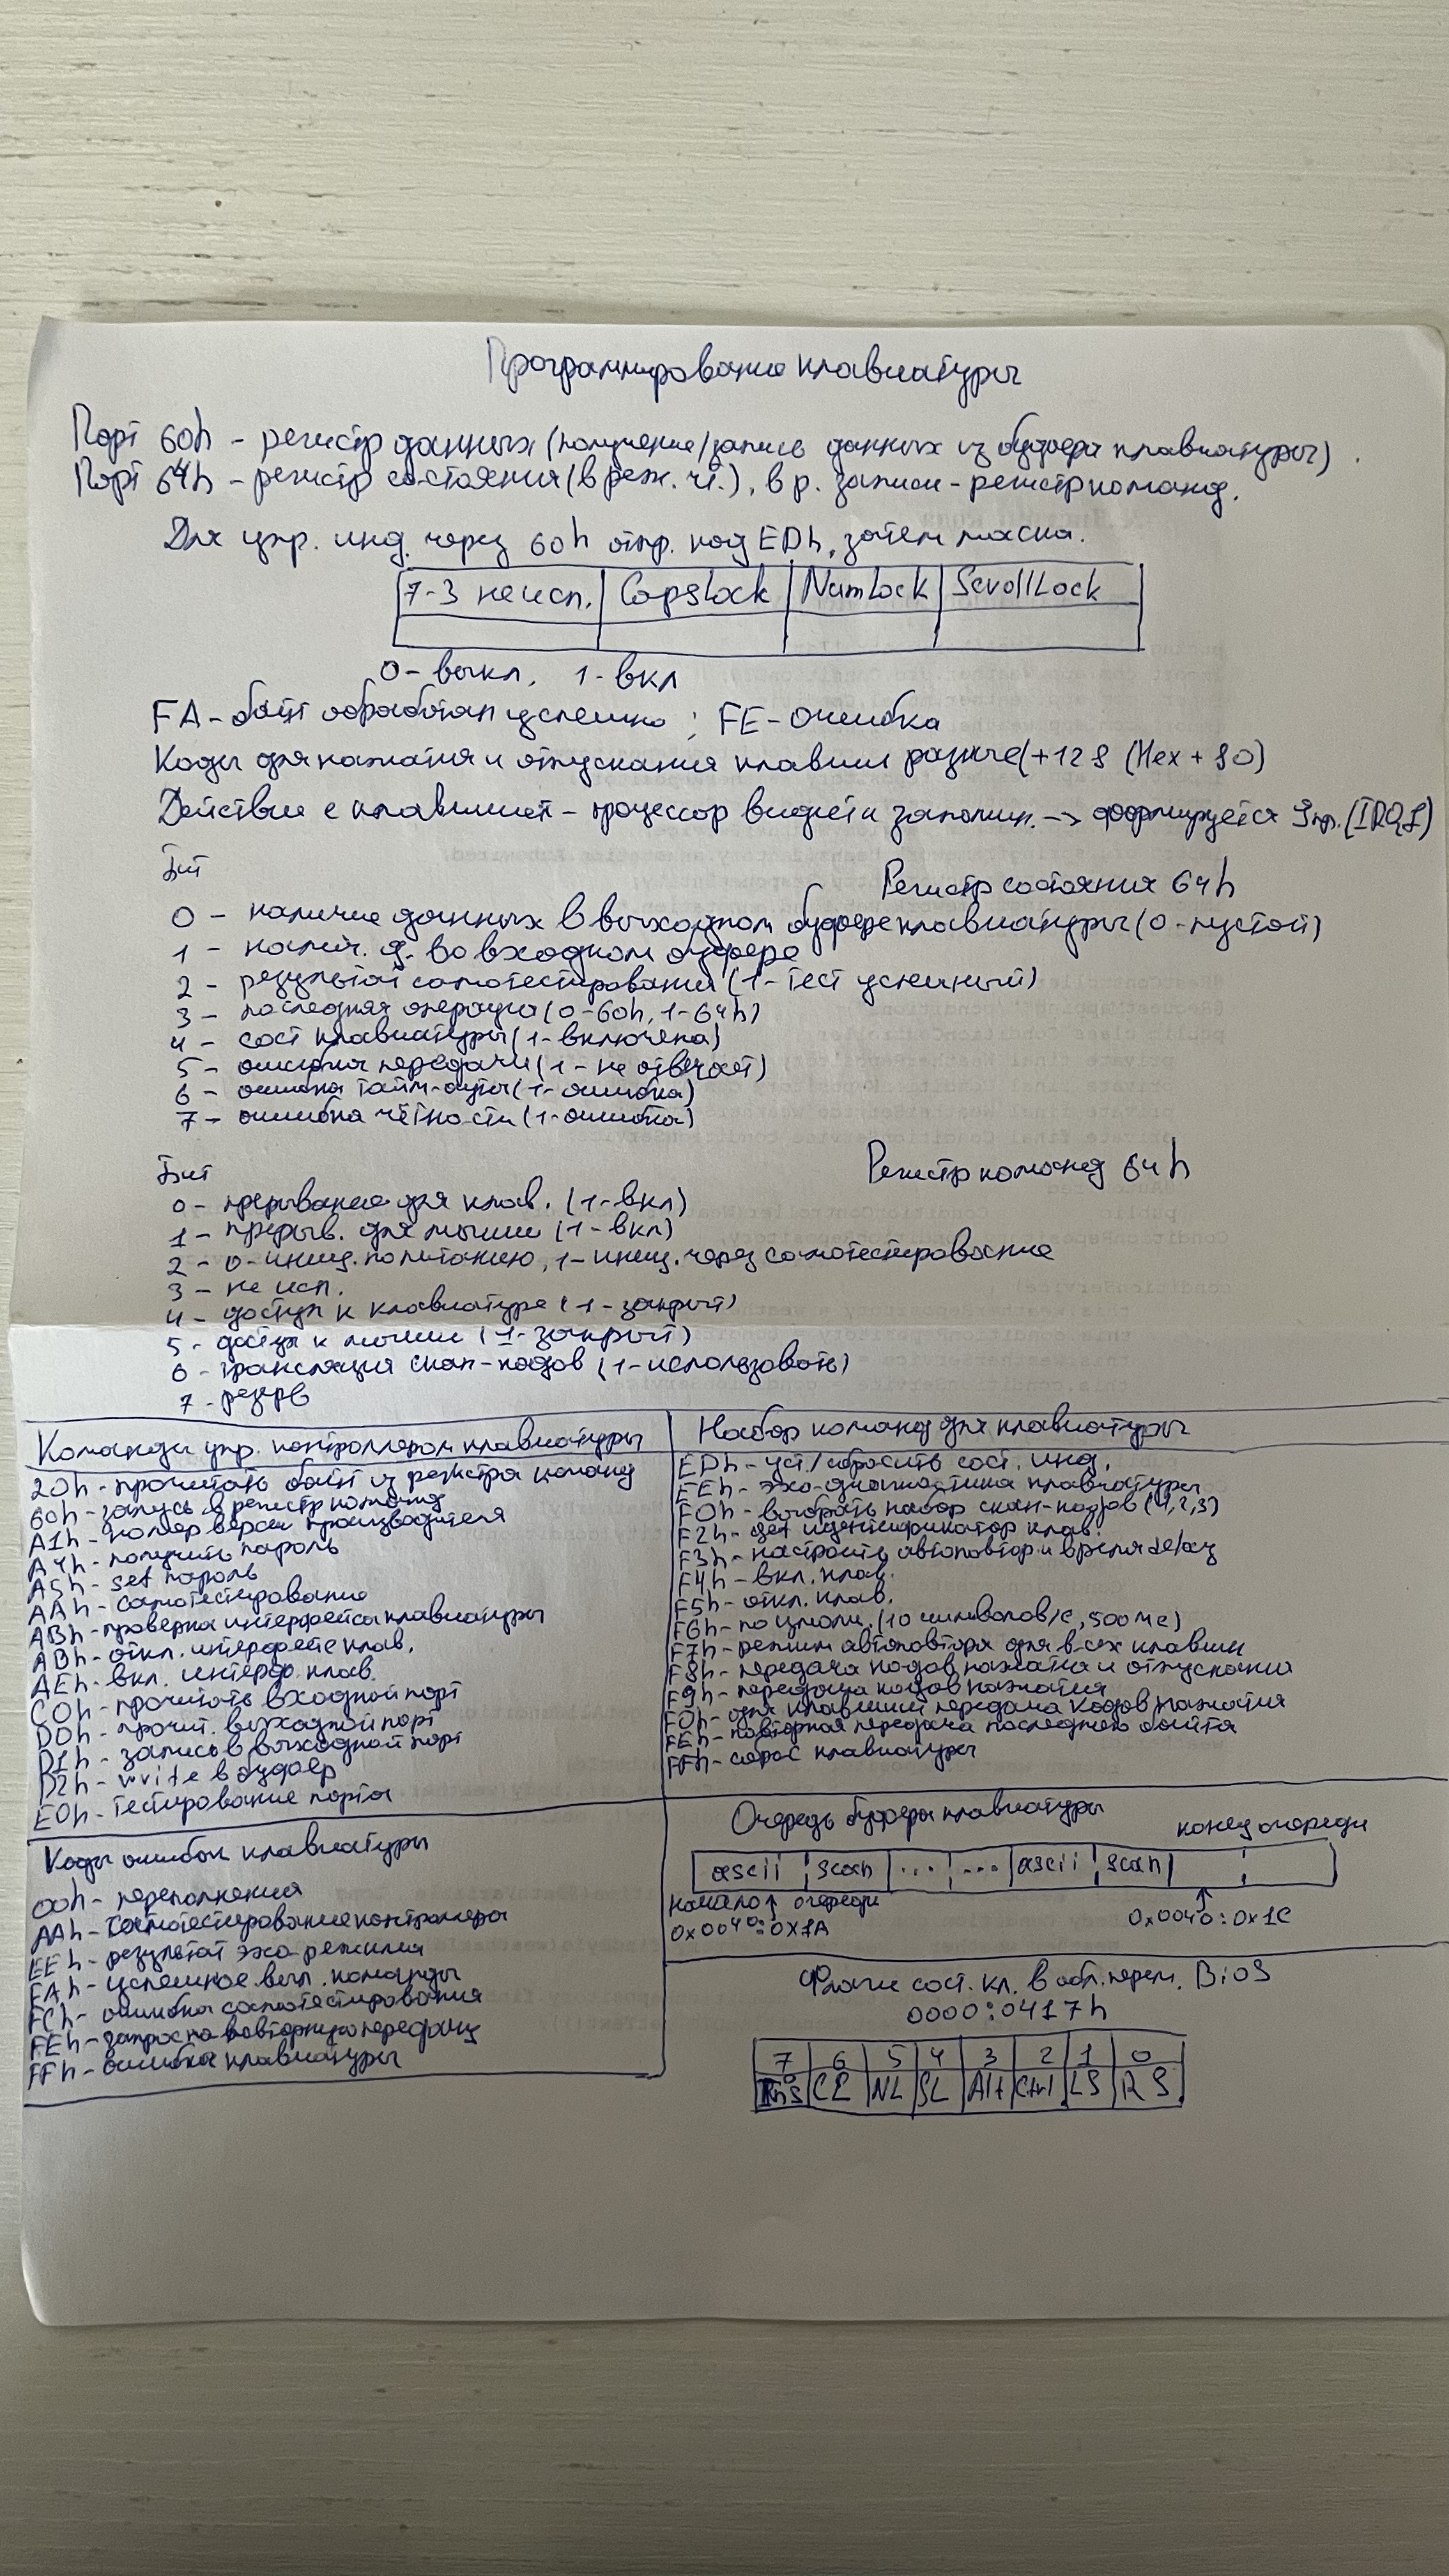 Программирование клавиатуры
Порт 60h - регистр данных (получение/запись данных из буфера клавиатуры).
Порт 64h - регистр состояния (в реж. чт.), в р. записи - регистр команд.
Для упр. инд. через 60h отпр. код EDh, затем маска.
7-3 не исп. CapsLock NumLock ScrollLock
0 - выкл, 1 - вкл
FA - байт обработан успешно; FE - ошибка
Коды для нажатия и отпускания клавиш разные (+128 (Hex + 80)
Действие с клавишей - процессор видит и запомин. -> формируется Iпр. (IRQ1)
Бит
Регистр состояния 64h
0 - наличие данных в выходном буфере клавиатуры (0 - пустой)
1 - налич. д. во входном буфере
2 - результат самотестирования (1 - тест успешный)
3 - последняя операция (0 - 60h, 1 - 64h)
4 - сост клавиатуры (1 - включена)
5 - ошибка передачи (1 - не отвечает)
6 - ошибка тайм-аута (1 - ошибка)
7 - ошибка чётности (1 - ошибка)
Бит
Регистр команд 64h
0 - прерывание для клав. (1 - вкл)
1 - прерыв. для мыши (1 - вкл)
2 - 0 - иниц. по питанию, 1 - иниц. через самотестирование
3 - не исп.
4 - доступ к клавиатуре (1 - закрыт)
5 - доступ к мыши (1 - закрыт)
6 - трансляция скан-кодов (1 - использовать)
7 - резерв
Команды упр. контроллером клавиатуры
20h - прочитать байт из регистра команд
60h - запись в регистр команд
A1h - номер версии производителя
A4h - получить пароль
A5h - set пароль
AAh - самотестирование
ABh - проверка интерфейса клавиатуры
ADh - откл. интерфейс клав.
AEh - вкл. интерф. клав.
C0h - прочитать входной порт
D0h - прочит. выходной порт
D1h - запись в выходной порт
D2h - write в буфер
E0h - тестирование порта
Набор команд для клавиатуры
EDh - уст./сбросить сост. инд.
EEh - эхо-диагностика клавиатуры
F0h - выбрать набор скан-кодов (1,2,3)
F2h - get идентификатор клав.
F3h - настроить автоповтор и время delay
F4h - вкл. клав.
F5h - откл. клав.
F6h - по умолч. (10 символов/с, 500 мс)
F7h - режим автоповтора для всех клавиш
F8h - передача кодов нажатия и отпускания
F9h - передача кодов нажатия
FDh - для клавиши передача кодов нажатия
FEh - повторная передача последнего байта
FFh - сброс клавиатуры
Коды ошибок клавиатуры
00h - переполнения
AAh - самотестирование контроллера
EEh - результат эхо режима
FAh - успешное вып. команды
FCh - ошибка самотестирования
FEh - запрос на повторную передачу
FFh - ошибка клавиатуры
Очередь буфера клавиатуры
конец очереди
ascii scan ... ... ascii scan
начало очереди
0x0040:0x1A
0x0040:0x1C
Флаги сост. кл. в обл. перем. BiOS
0000:0417h
7 6 5 4 3 2 1 0
InS CL NL SL Alt Ctrl LS RS